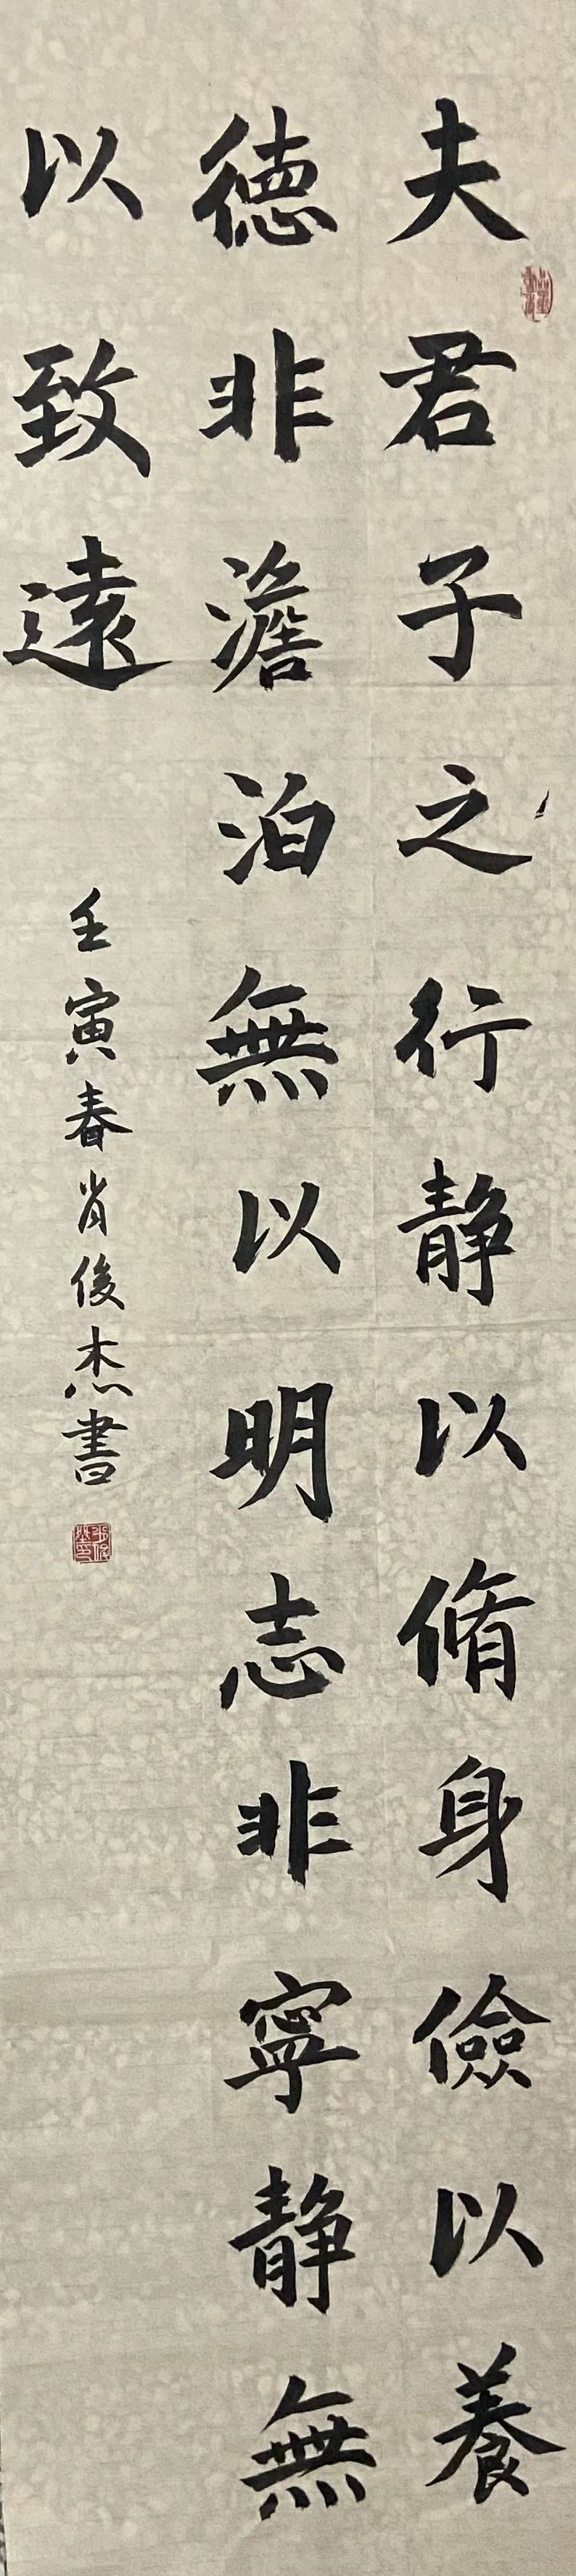 夫君子之行静以脩身儉以養
德非澹泊無以明志非寧静無
以致遠
壬寅春肖俊杰書